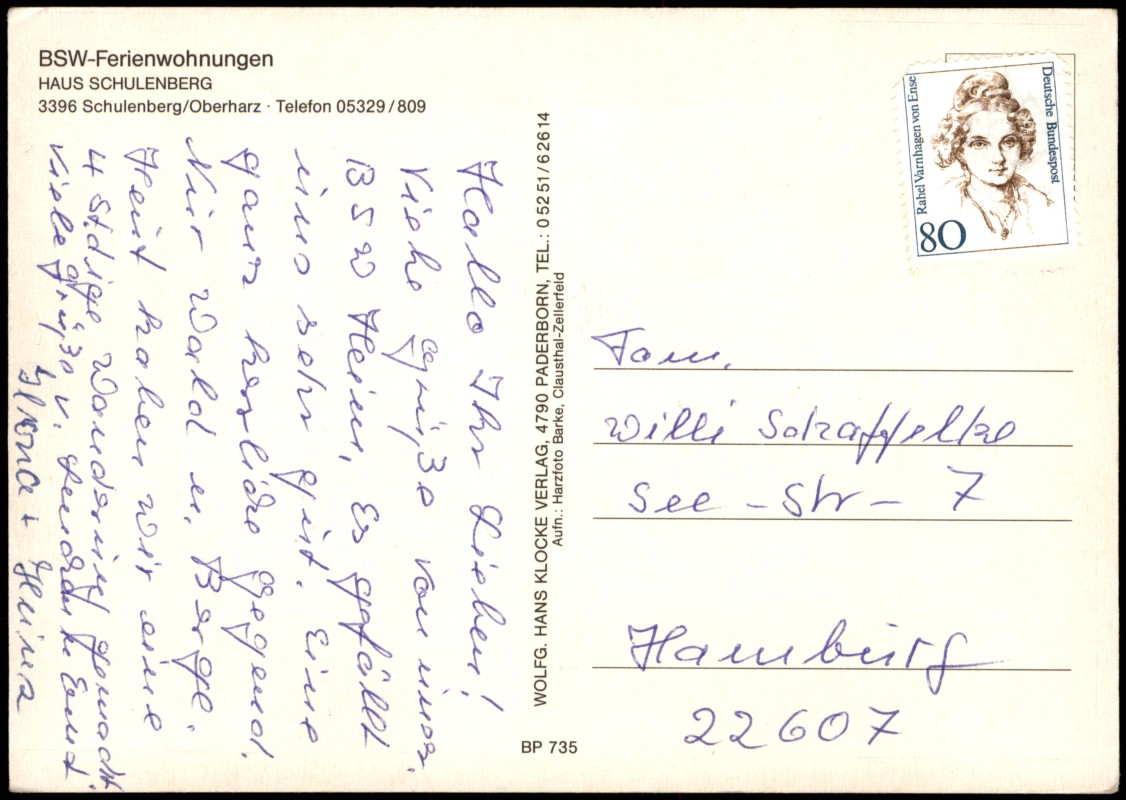 BSW-Ferienwohnungen
HAUS SCHULENBERG
3396 Schulenberg/Oberharz · Telefon 05329/809
Hallo Ihr Lieben!
Viele Grüße von unser.
BSW Heim, Es gefällt
uns sehr gut. Eine
ganz herliche Gegend.
Nur Wald u. Berge.
Heut haben wir eine
4 Stdige Wanderung gemacht.
Viele Grüße v.
+ Heinz
WOLFG. HANS KLOCKE VERLAG, 4790 PADERBORN, TEL.: 05251/62614
Aufn.: Harzfoto Barke, Clausthal-Zellerfeld
BP 735
Rahel Varnhagen von Ense
Deutsche Bundespost
80
Fam.
Willi Schaffelke
See-Str- 7
Hamburg
22607